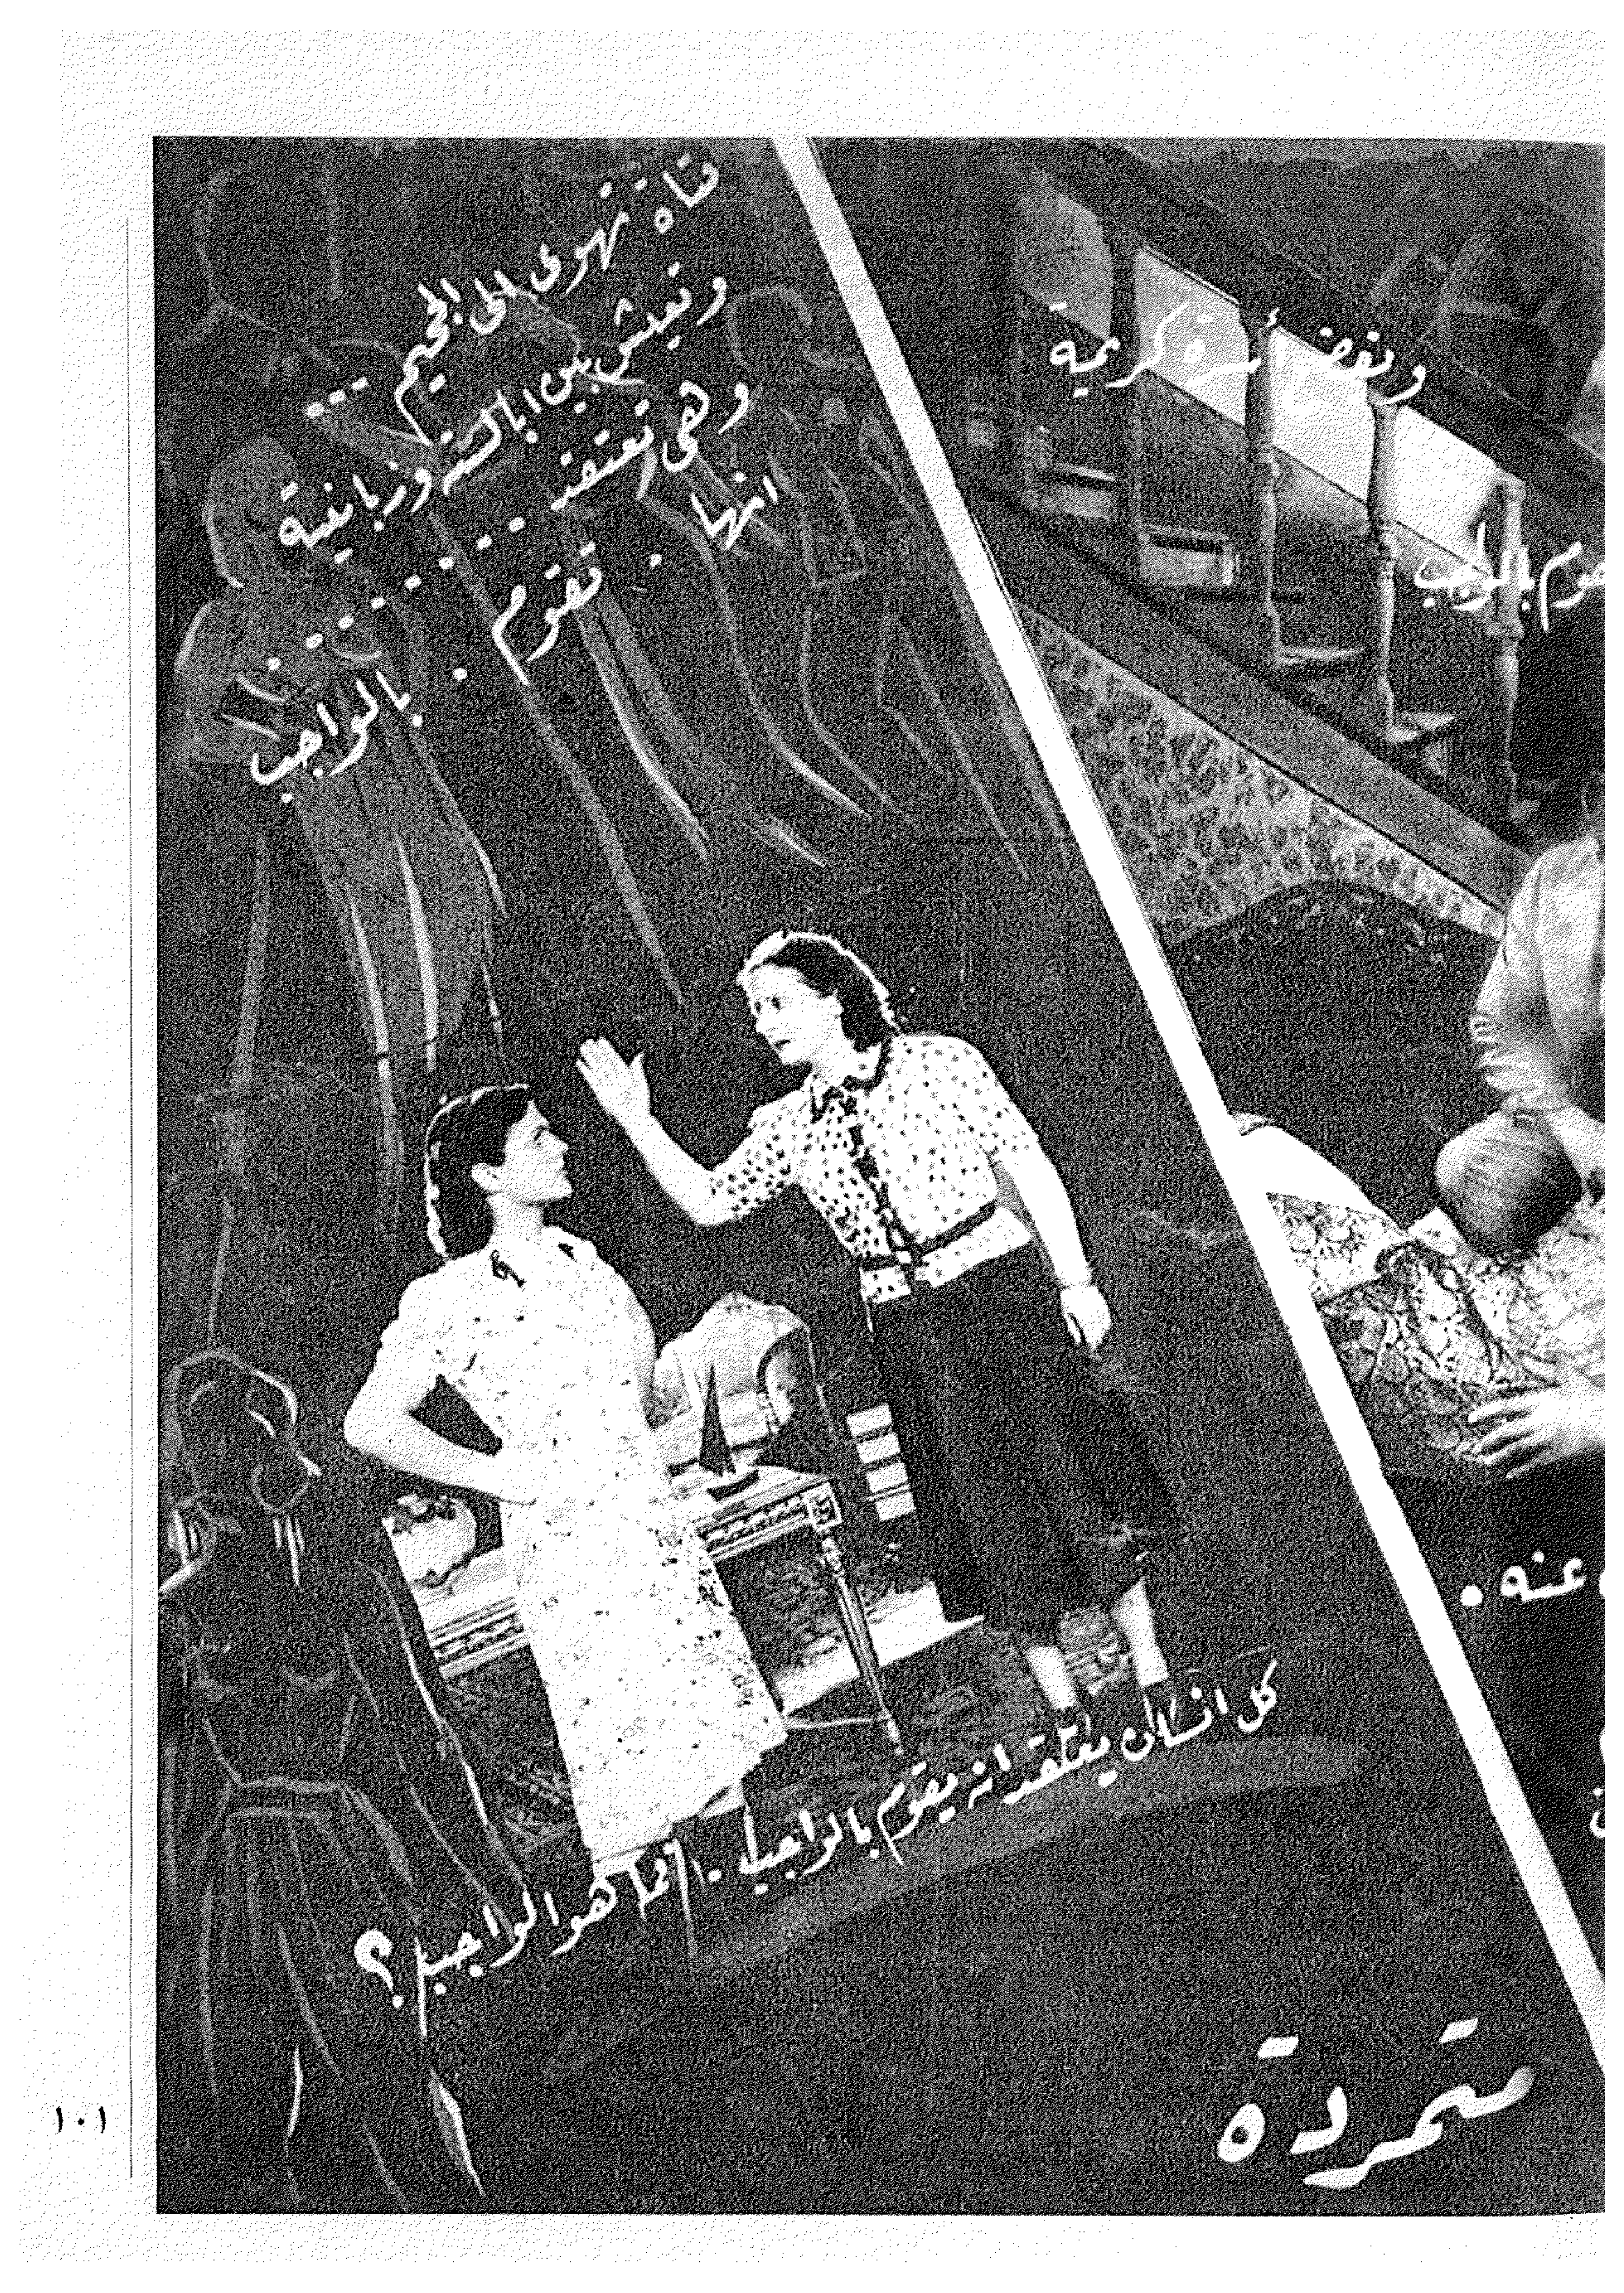 فتاة تهوى الى الجحيم ...
وتعيش بين ابالسته وزبانيته
وهى تعتقد ........
انها . تقوم . بالواجب
كل انسان يعتقد انه يقوم بالواجب .. فما هو الواجب ؟
أسرة كريمة
بالواجب
عنه .
متمردة
١٠١